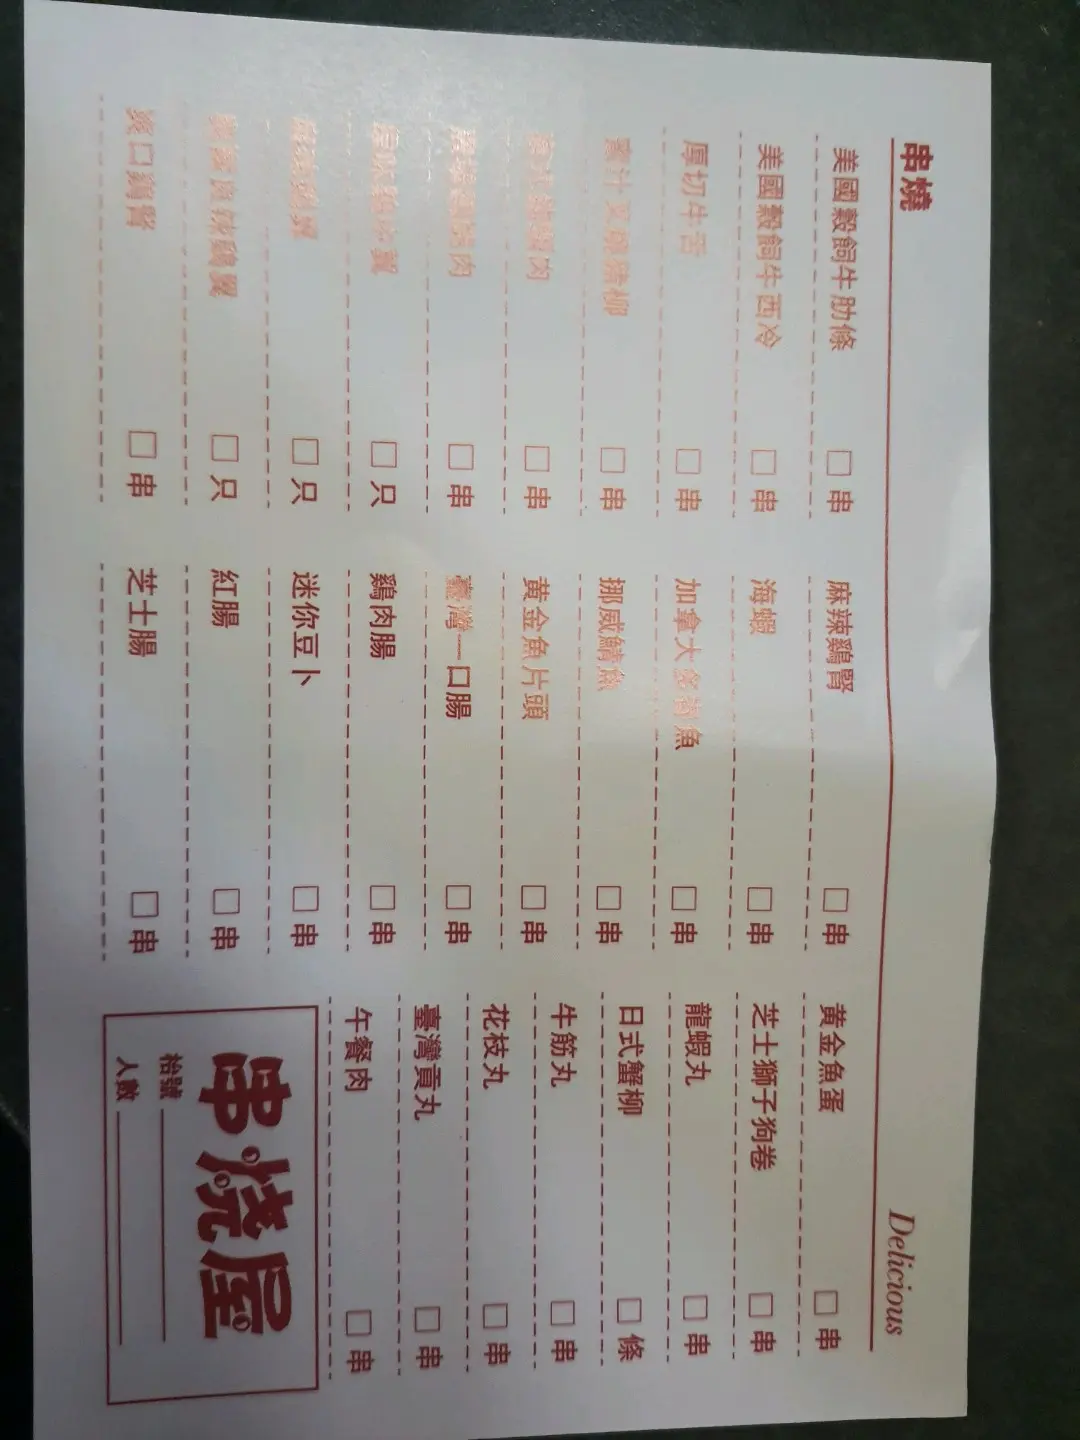 串燒
Delicious
美國穀飼牛肋條 □ 串
美國穀飼牛西冷 □ 串
厚切牛舌 □ 串
蜜汁叉燒豬柳 □ 串
肉 □ 串
肉 □ 串
翼 □ 只
□ 只
鷄翼 □ 只
爽口鷄腎 □ 串
麻辣鷄腎 □ 串
海蝦 □ 串
加拿大多春魚 □ 串
挪威鯖魚 □ 串
黄金魚片頭 □ 串
臺灣一口腸 □ 串
鷄肉腸 □ 串
迷你豆卜 □ 串
紅腸 □ 串
芝士腸 □ 串
黄金魚蛋 □ 串
芝士獅子狗卷 □ 串
龍蝦丸 □ 串
日式蟹柳 □ 條
牛筋丸 □ 串
花枝丸 □ 串
臺灣貢丸 □ 串
午餐肉 □ 串
串烧屋
枱號
人數